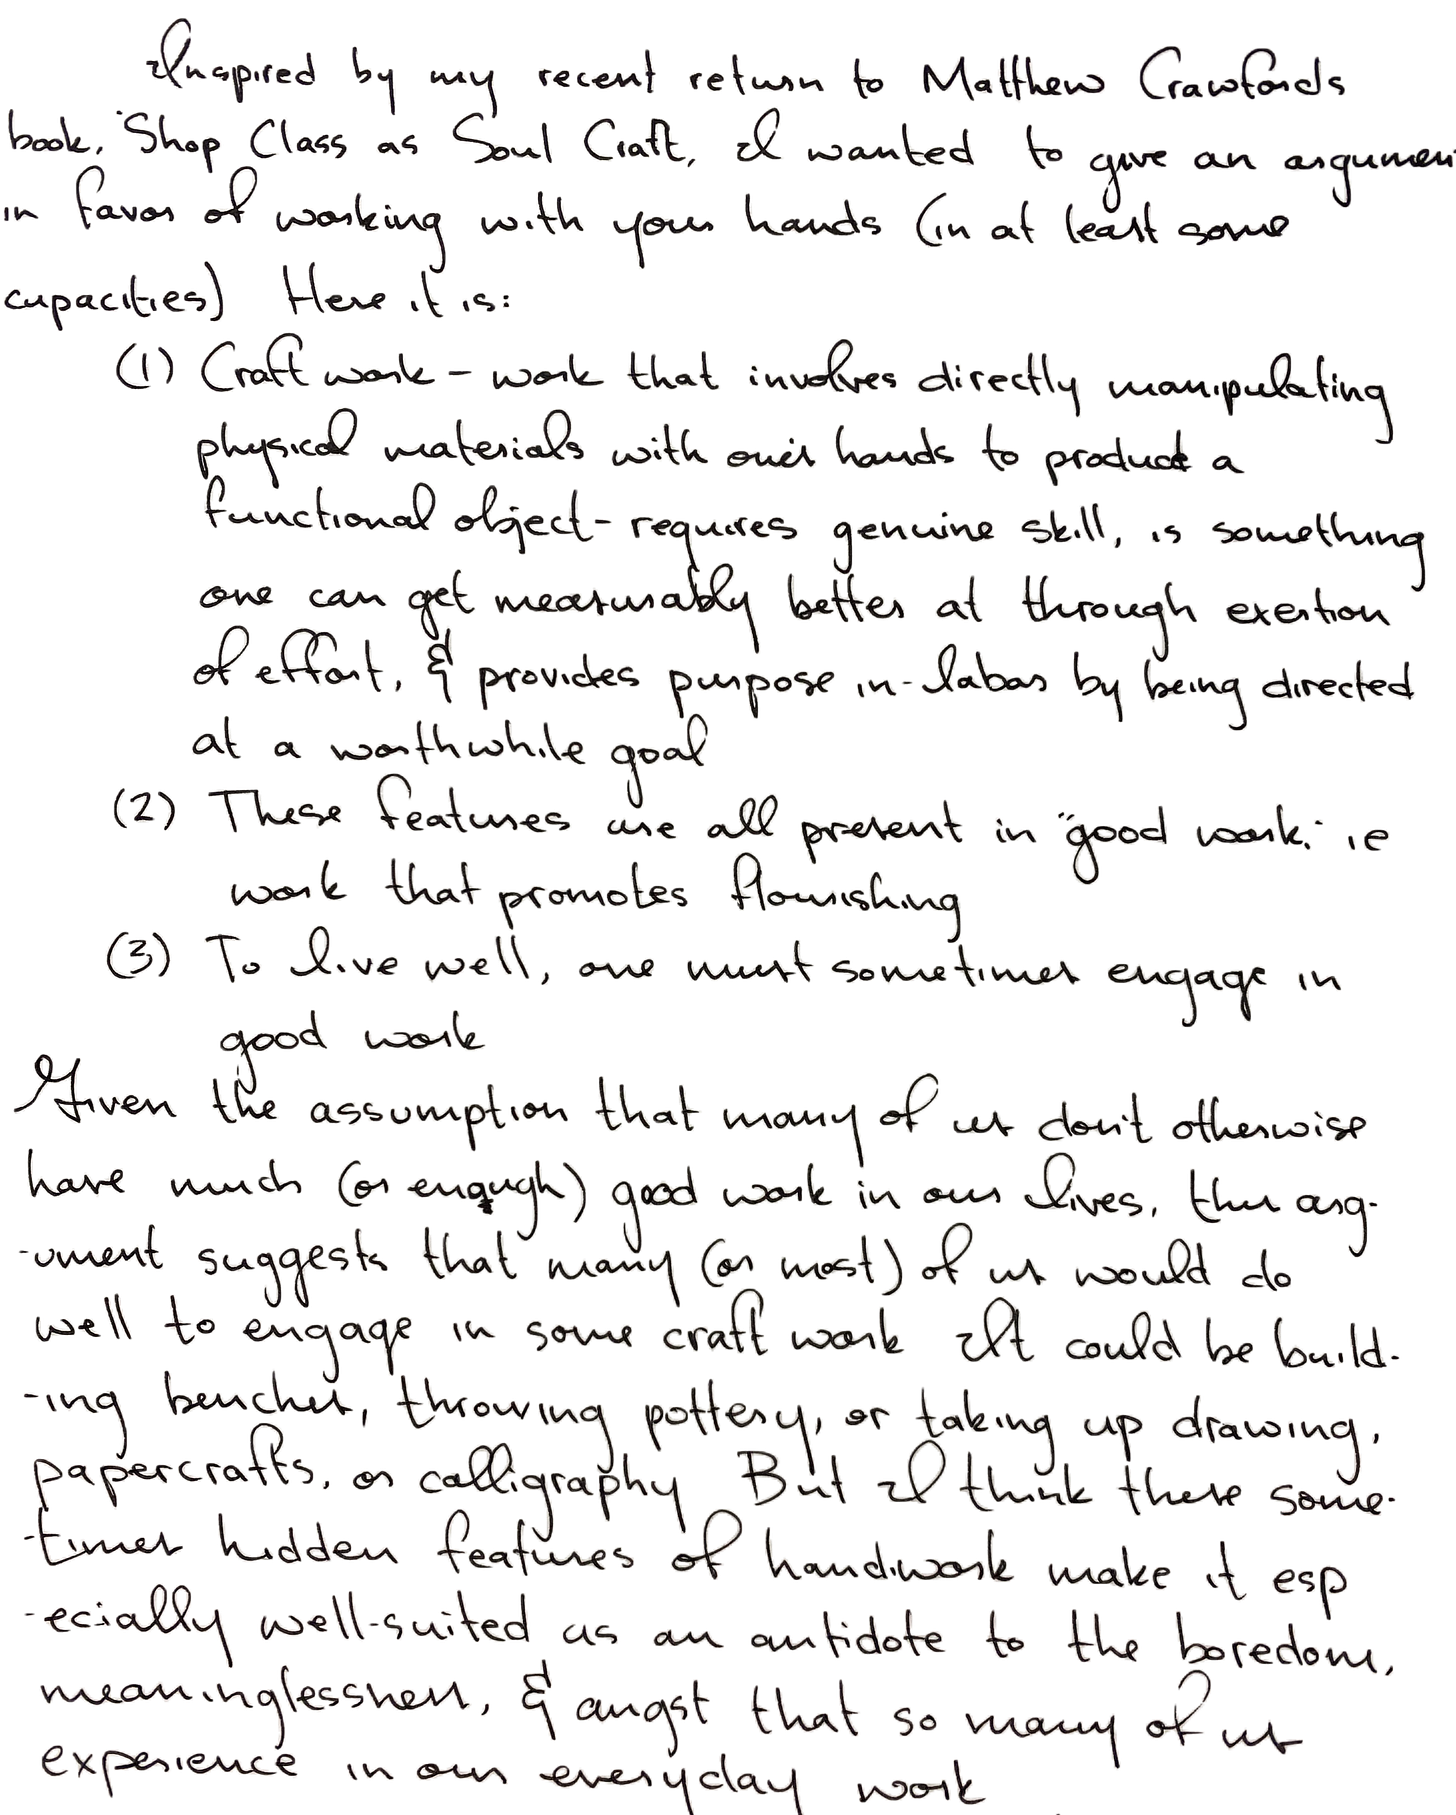 Inspired by my recent return to Matthew Crawfords
book, "Shop Class as Soul Craft, I wanted to give an argumen
in favor of working with your hands (in at least some
capacities) Here it is:
(1) Craft work – work that involves directly manipulating
physical materials with one's hands to product a
functional object – requires genuine skill, is something
one can get measurably better at through exertion
of effort, & provides purpose in-labor by being directed
at a worthwhile goal
(2) These features are all present in "good work," ie
work that promotes flourishing
(3) To live well, one must sometimes engage in
good work
Given the assumption that many of us don't otherwise
have much (or enough) good work in our lives, this arg-
-ument suggests that many (or most) of us would do
well to engage in some craft work It could be build-
-ing benches, throwing pottery, or taking up drawing,
papercrafts, or calligraphy But I think these some-
-times hidden features of handiwork make it esp
-ecially well-suited as an antidote to the boredom,
meaninglessness, & angst that so many of us
experience in our everyday work